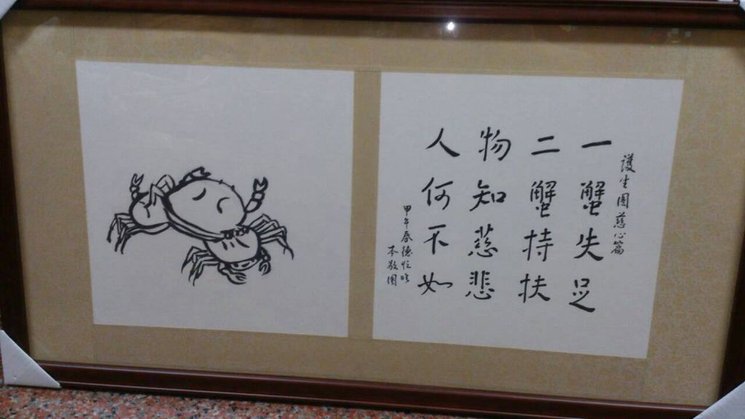 護生園慈心篇
一蟹失足
二蟹持扶
物知慈悲
人何不如
甲午春德